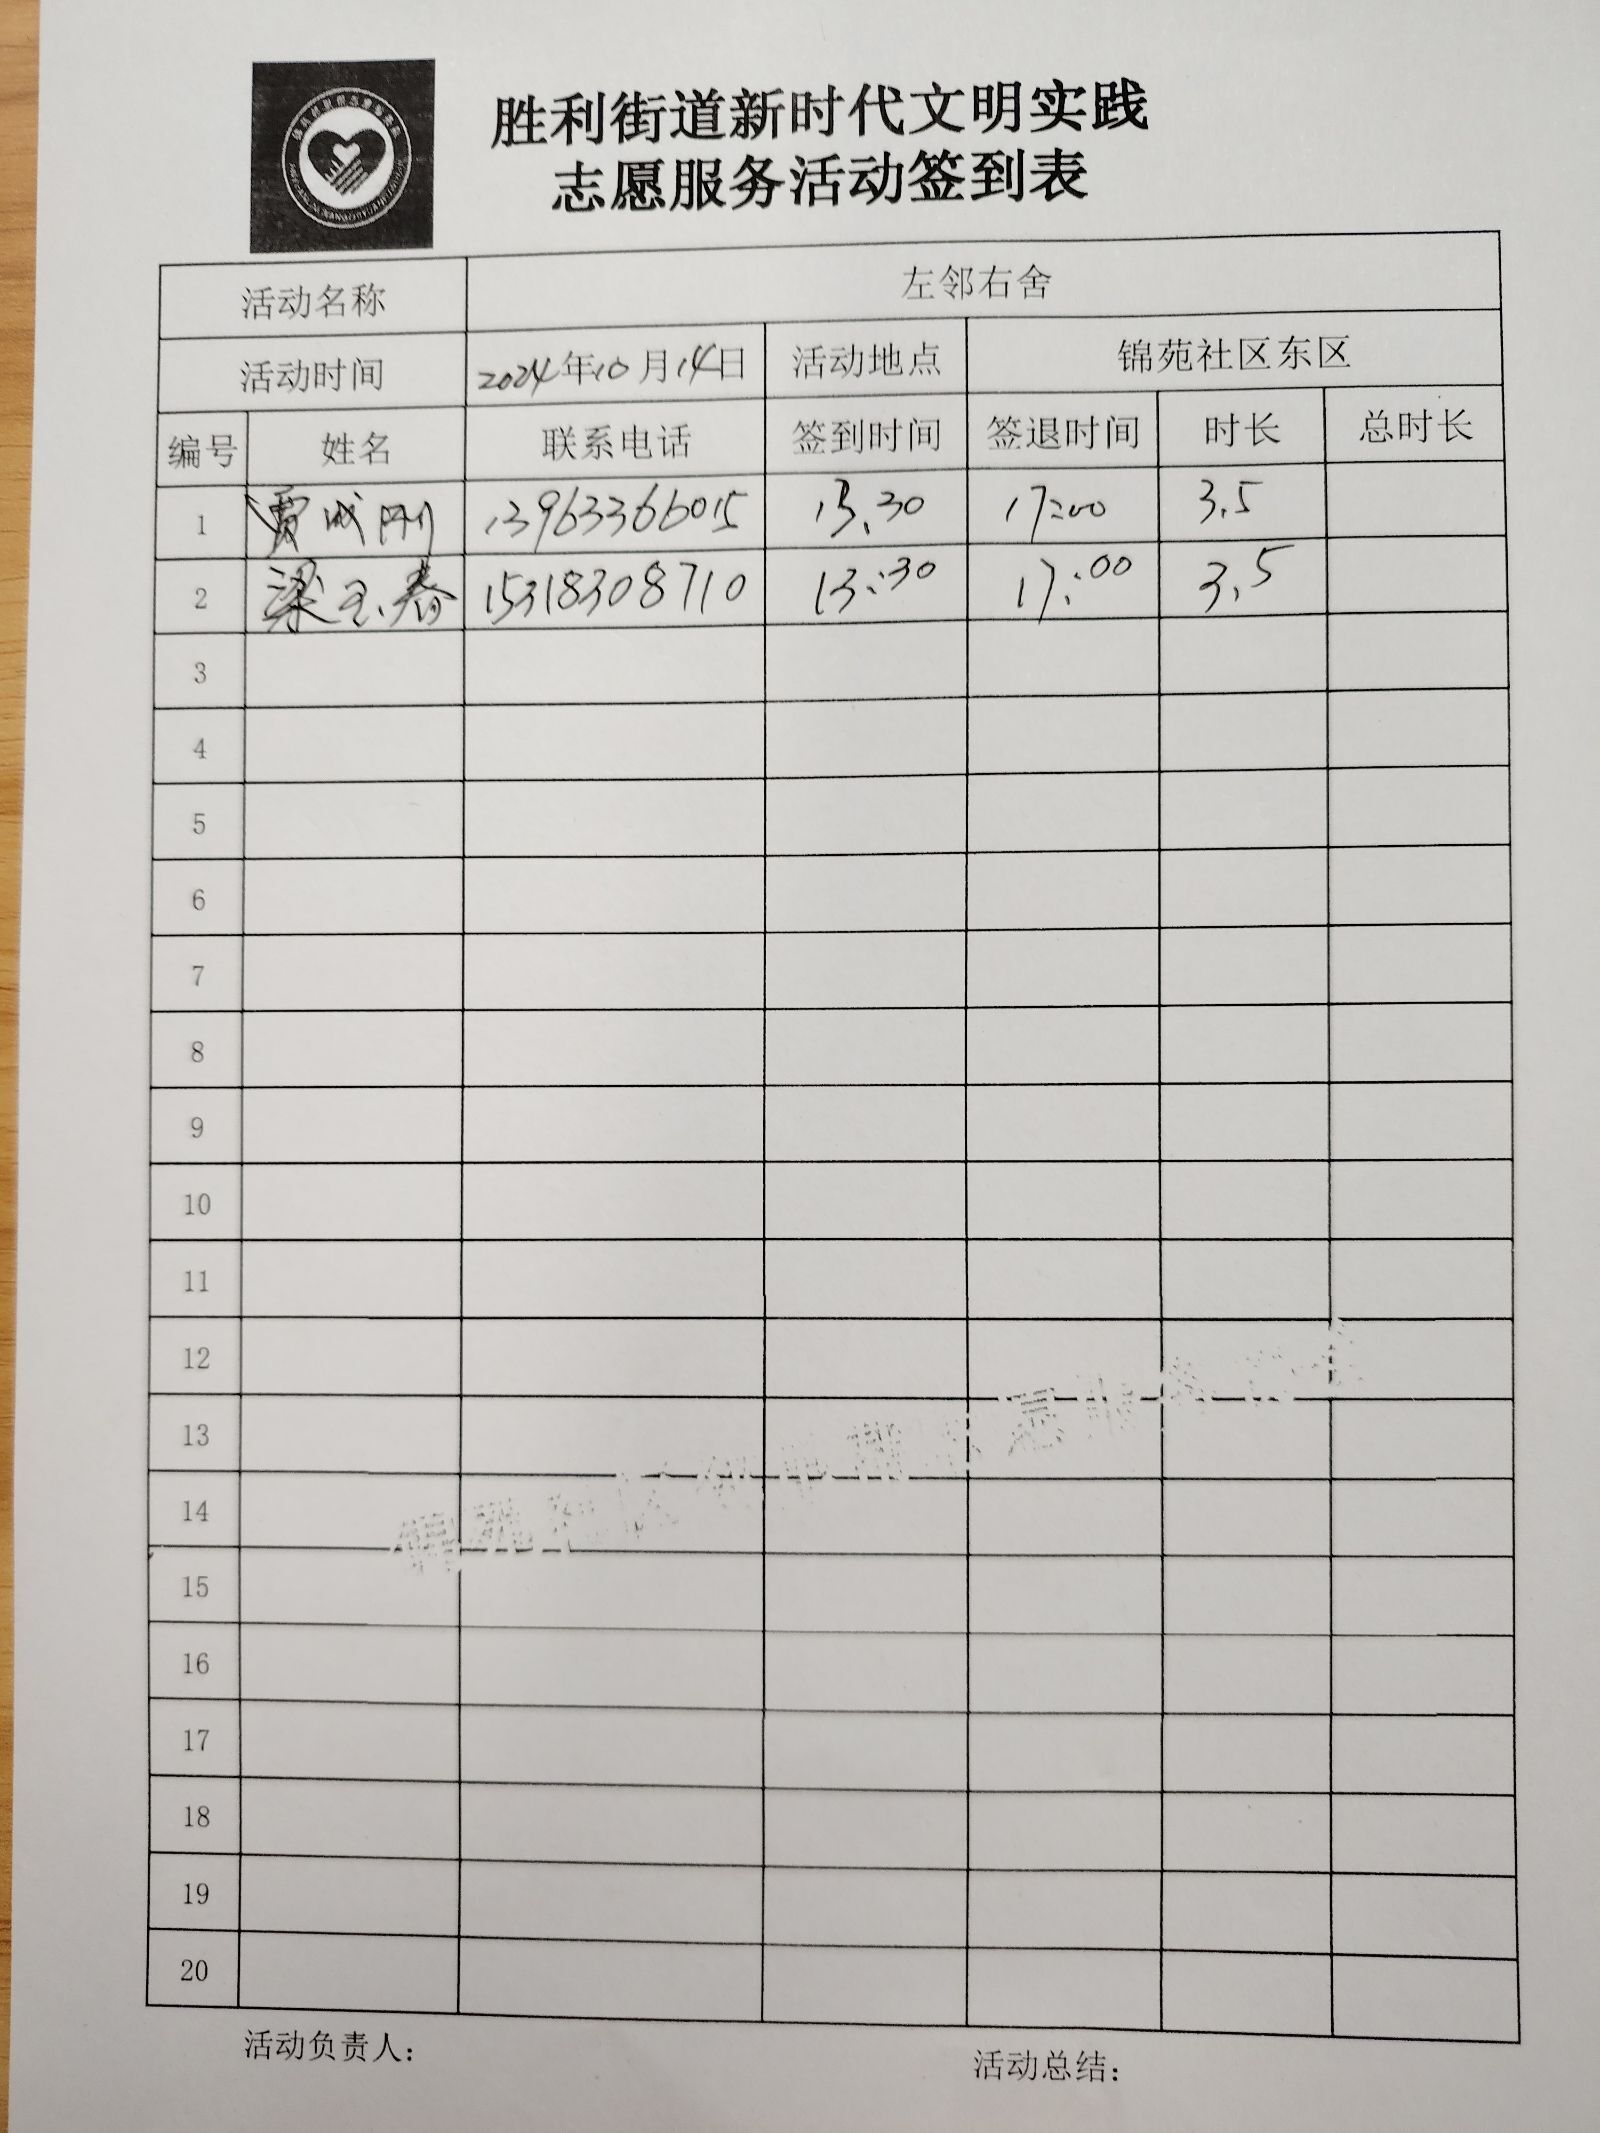 胜利街道新时代文明实践
志愿服务活动签到表
活动名称 左邻右舍
活动时间 2024年10月14日 活动地点 锦苑社区东区
编号 姓名 联系电话 签到时间 签退时间 时长 总时长
1 贾成刚 13963366015 13.30 17:00 3.5
2 梁玉春 15318308710 13:30 17:00 3.5
3
4
5
6
7
8
9
10
11
12
13
14
15
16
17
18
19
20
活动负责人： 活动总结：